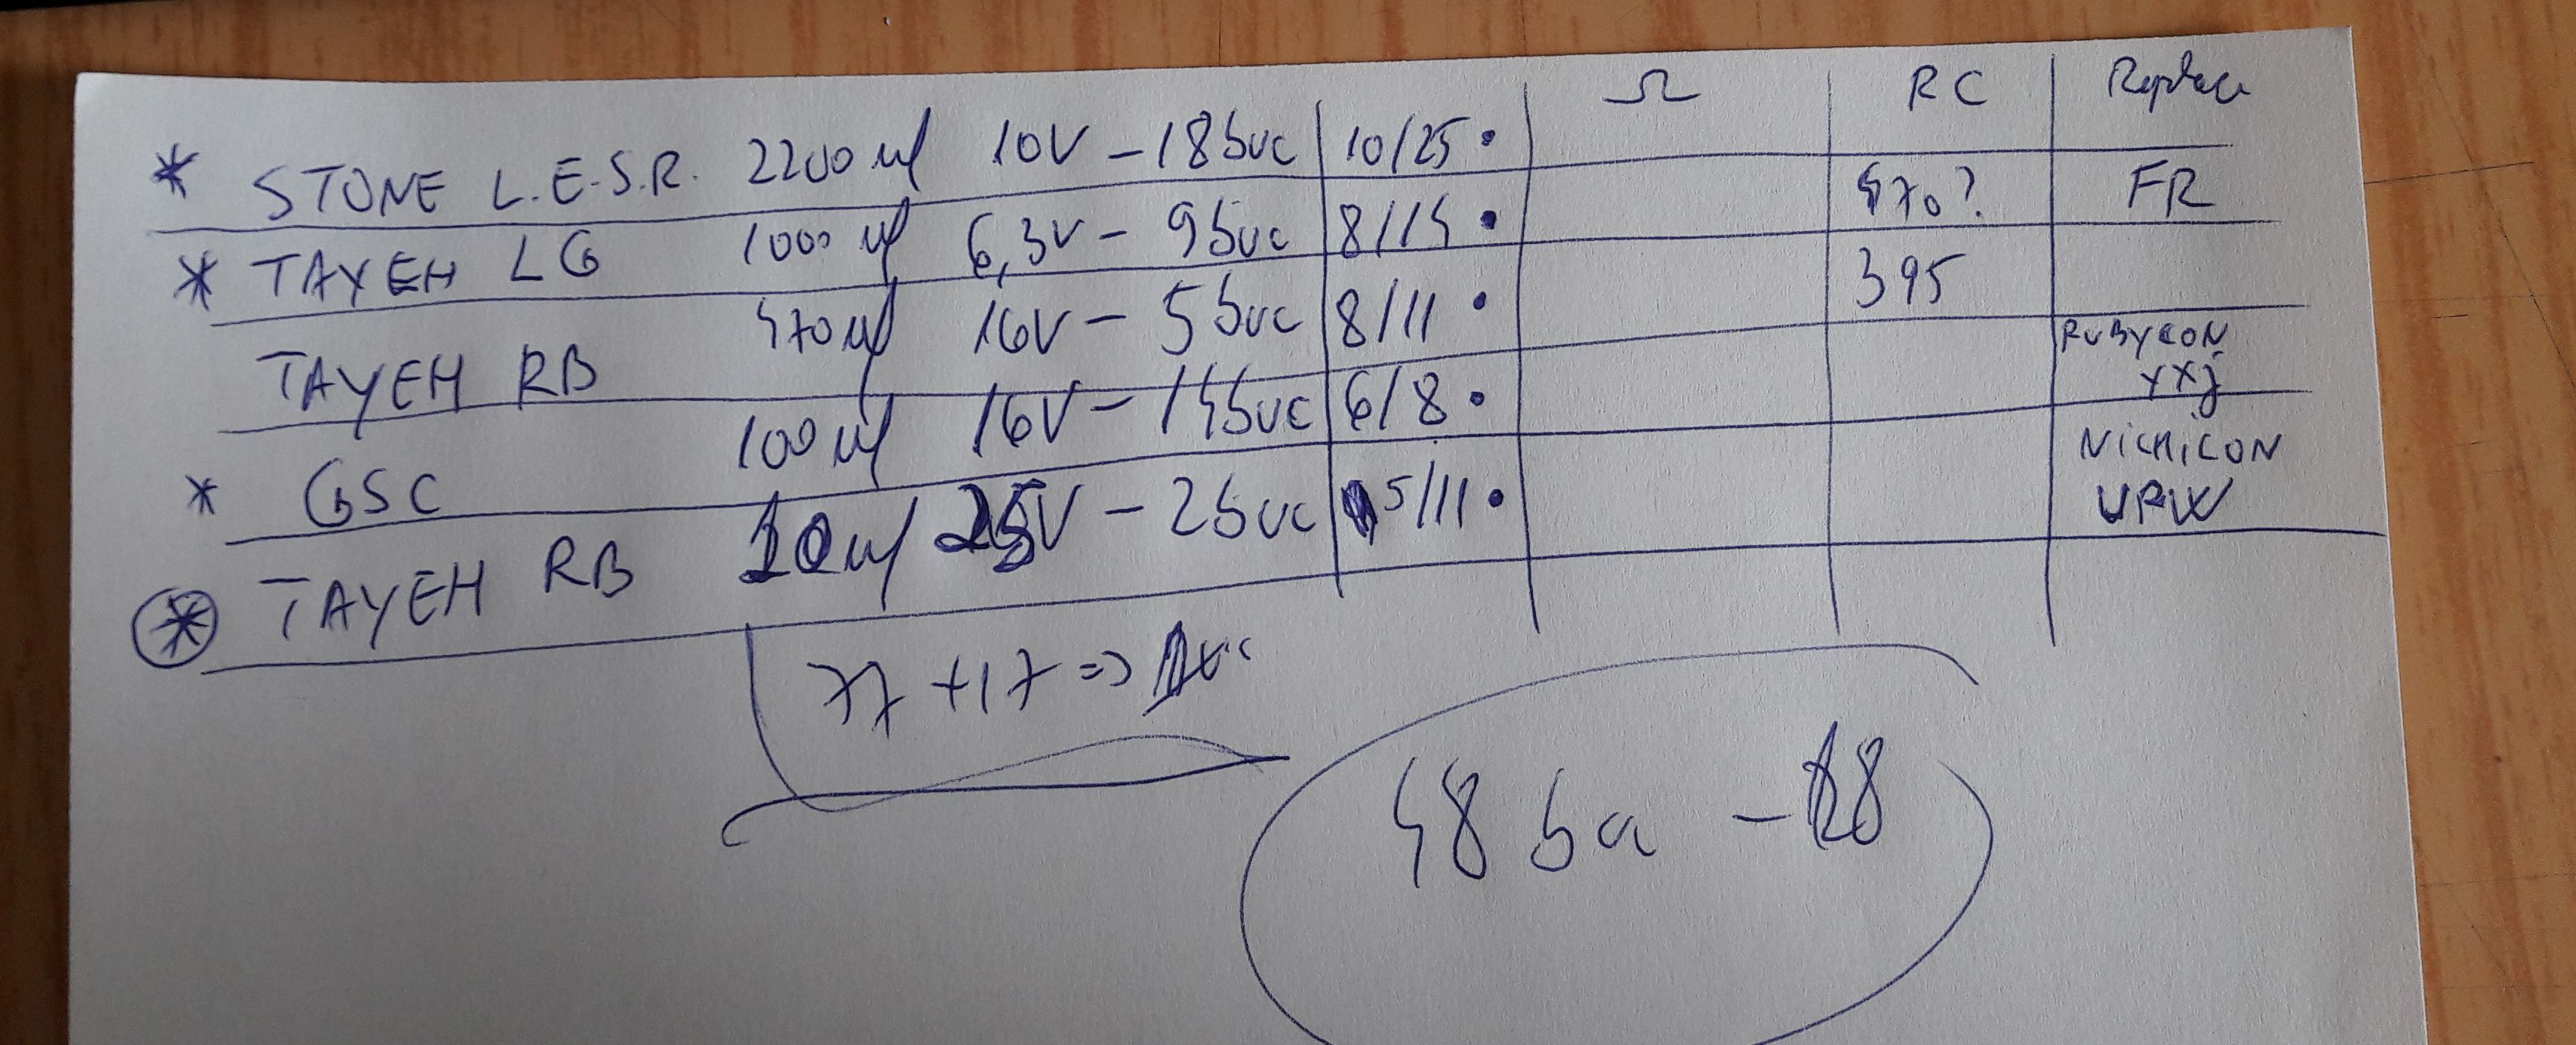 Ω RC Replace
* STONE L.E.S.R. 2200 uf 10V - 18 buc 10/25 •
* TAYEH LG 1000 uf 6,3V - 9 buc 8/14 • 470? FR
TAYEH RB 470 uf 16V - 5 buc 8/11 • 395
* GSC 100 uf 16V - 14 buc 6/8 • RUBYCON YXJ
* TAYEH RB 10 uf 25V - 2 buc 5/11 • NICHICON UPW
77 + 17 =>
48 ba - 18